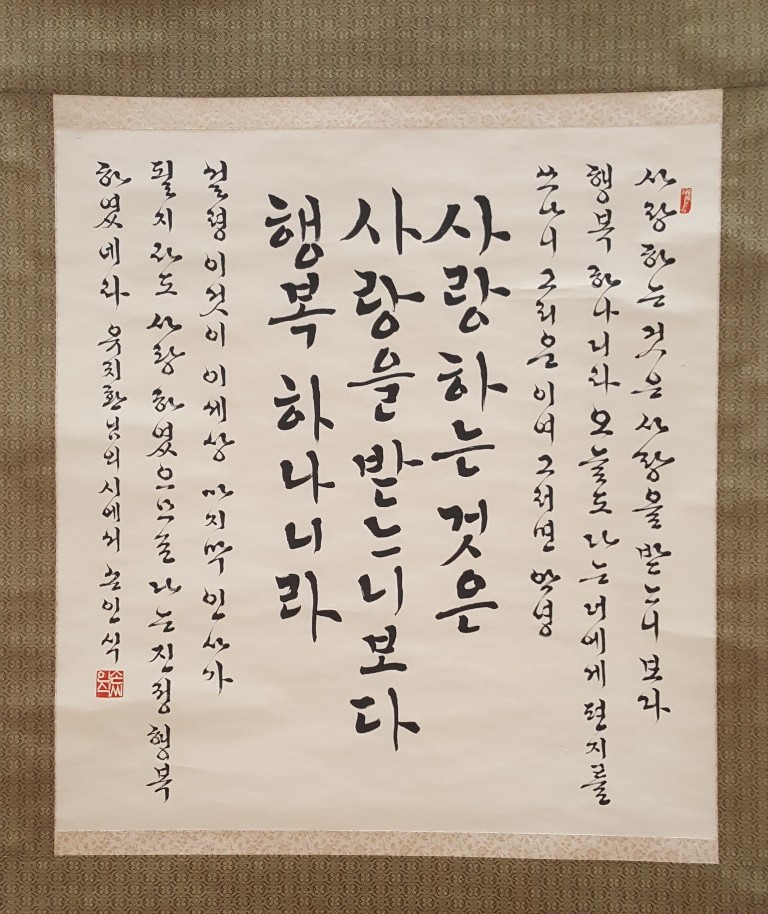 사랑하는 것은 사랑을 받느니 보다
행복 하나니라 오늘도 나는 너에게 편지를
쓰나니 그리운 이여 그러면 안녕
사랑 하는 것은
사랑을 받느니보다
행복 하나니라
설령 이것이 이세상 마지막 인사가
될지라도 사랑 하였으므로 나는 진정 행복
하였네라 유치환님의 시에서 손인식